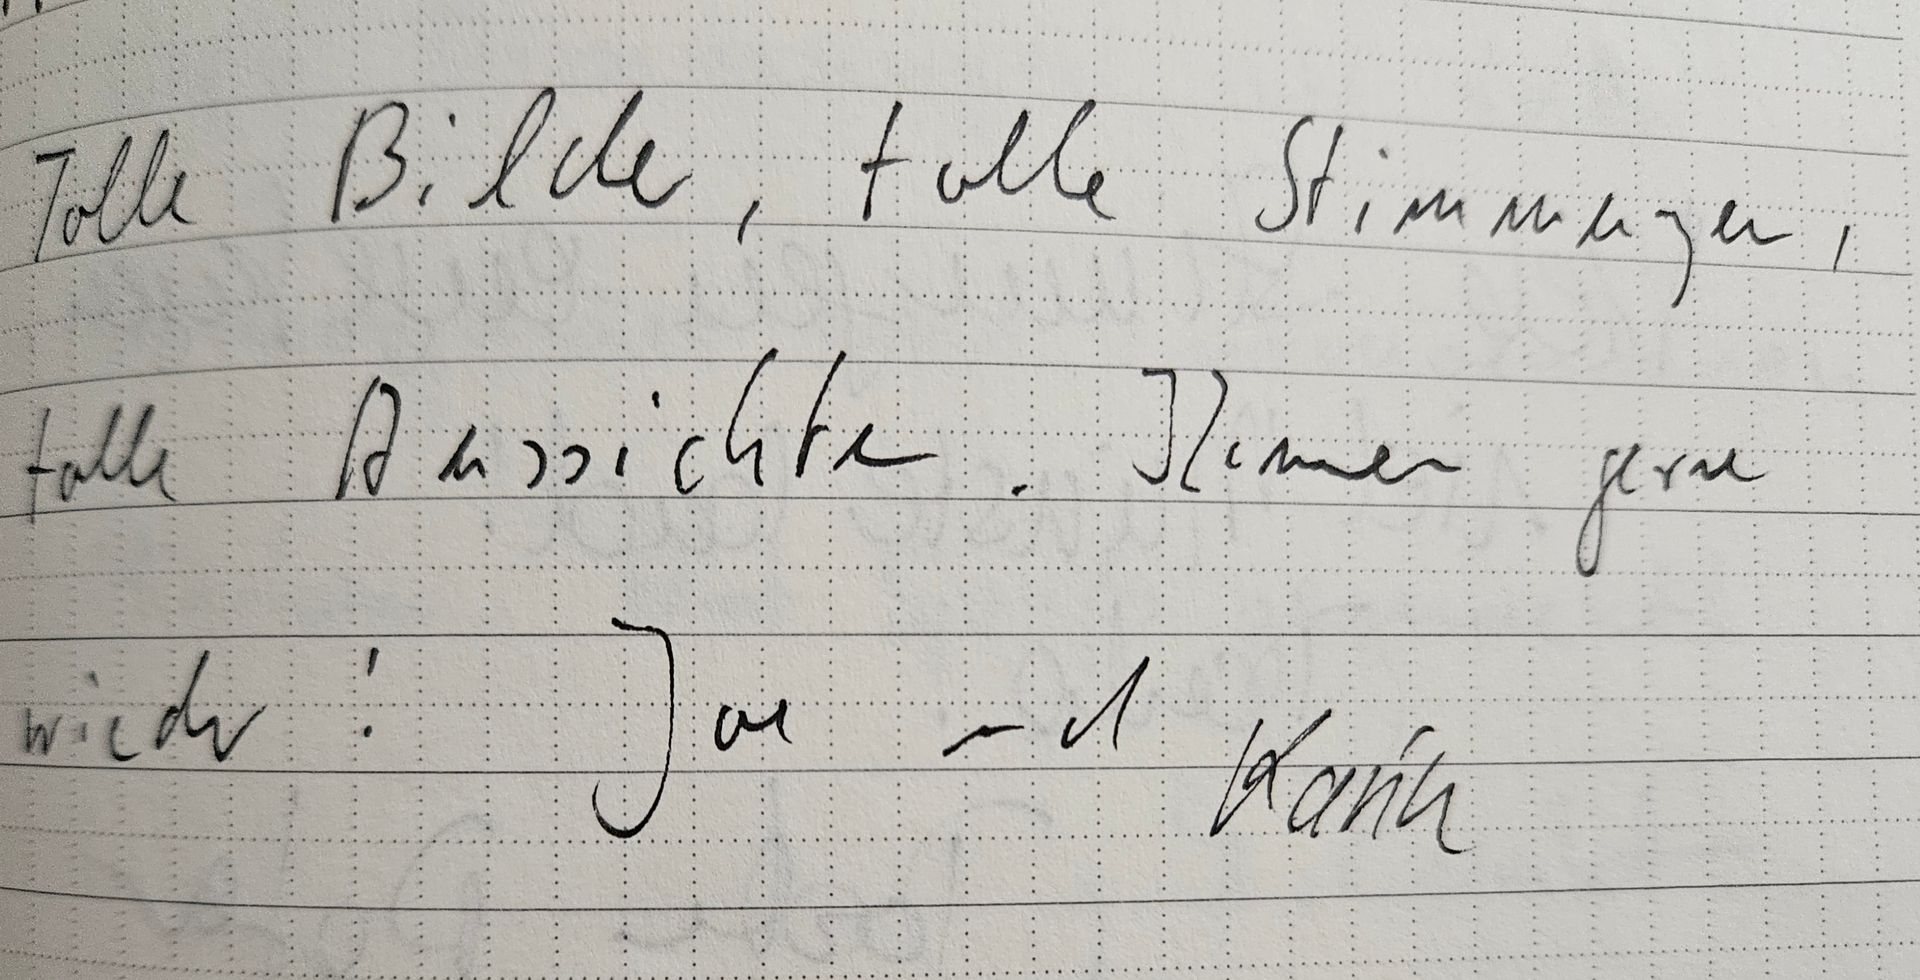 Tolle Bilder, tolle Stimmungen,
tolle Aussichten. Immer gerne
wieder! Joe und Karin